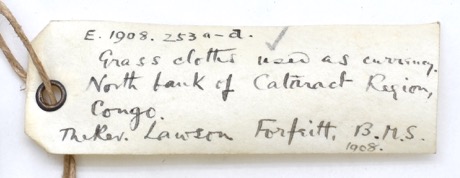 E. 1908. 253 a-d.
Grass cloths used as currency.
North bank of Cataract Region,
Congo.
The Rev. Lawson Forfeitt. B.M.S.
1908.